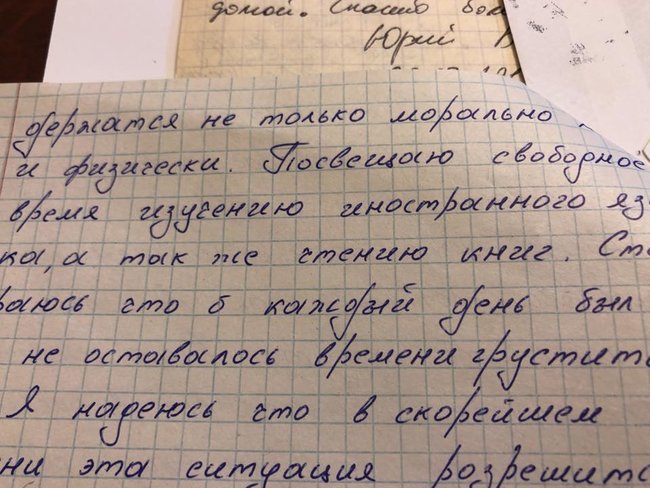 домой. Спасибо бол
Юрий В
держатся не только морально
и физически. Посвещаю свободное
время изучению иностранного яз
ка, а так же чтению книг. Ста
раюсь что б каждый день был
не оставалось времени грустить
Я надеюсь что в скорейшем
ни эта ситуация розрешитс